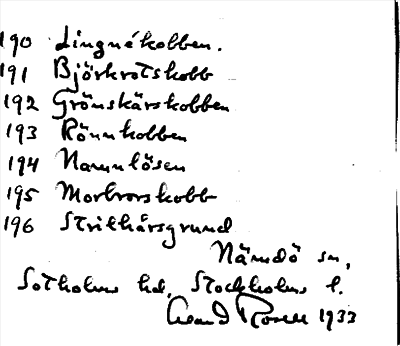 190 Lingnékobben.
191 Björkrotskobb
192 Grönskärskobben
193 Rönnkobben
194 Namnlösen
195 Morbrorskobb
196 Strithårsgrund
Nämdö sn,
Sotholms hd, Stockholms l.
1933